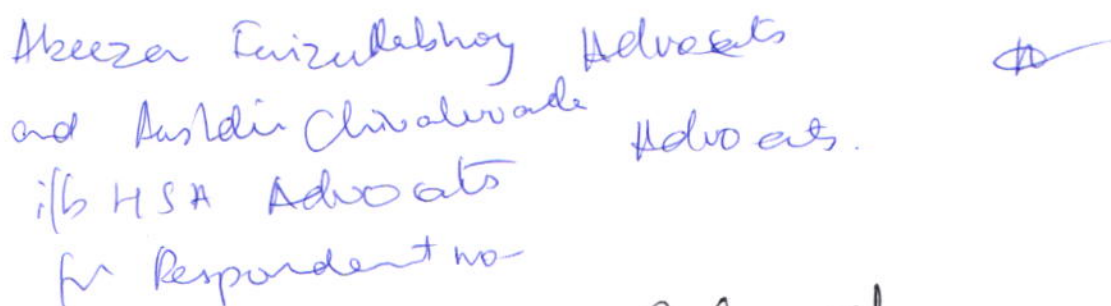 Abeezar Faizullabhoy Advocats
and Chivalwade Advocats.
i/b HSA Advocats
for Respondent no